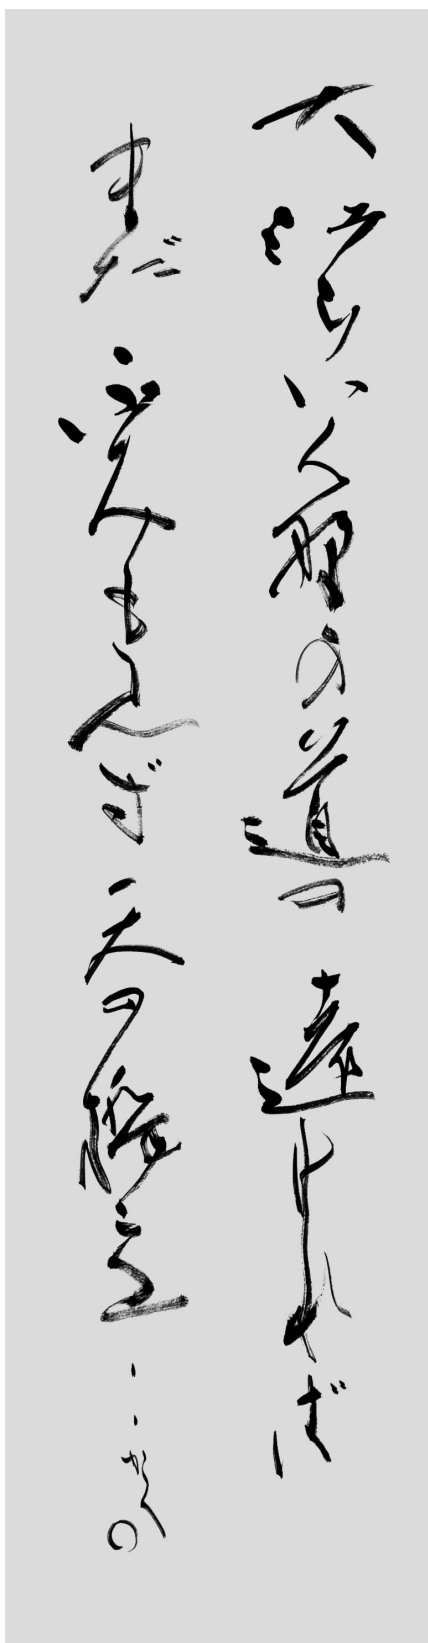 大江山いく野の道の遠ければ
まだふみも見ず天の橋立